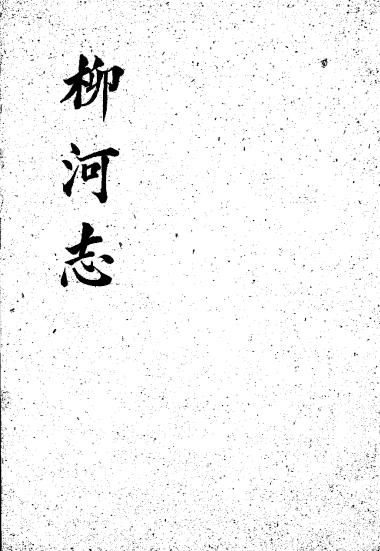 柳河志